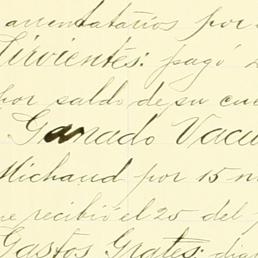 arrentatarios por
Sirvientes: pagó
por saldo de su cue
Ganado Vacu
Michaud por 15 n
e recibió el 25 del
Gastos Grales: dia